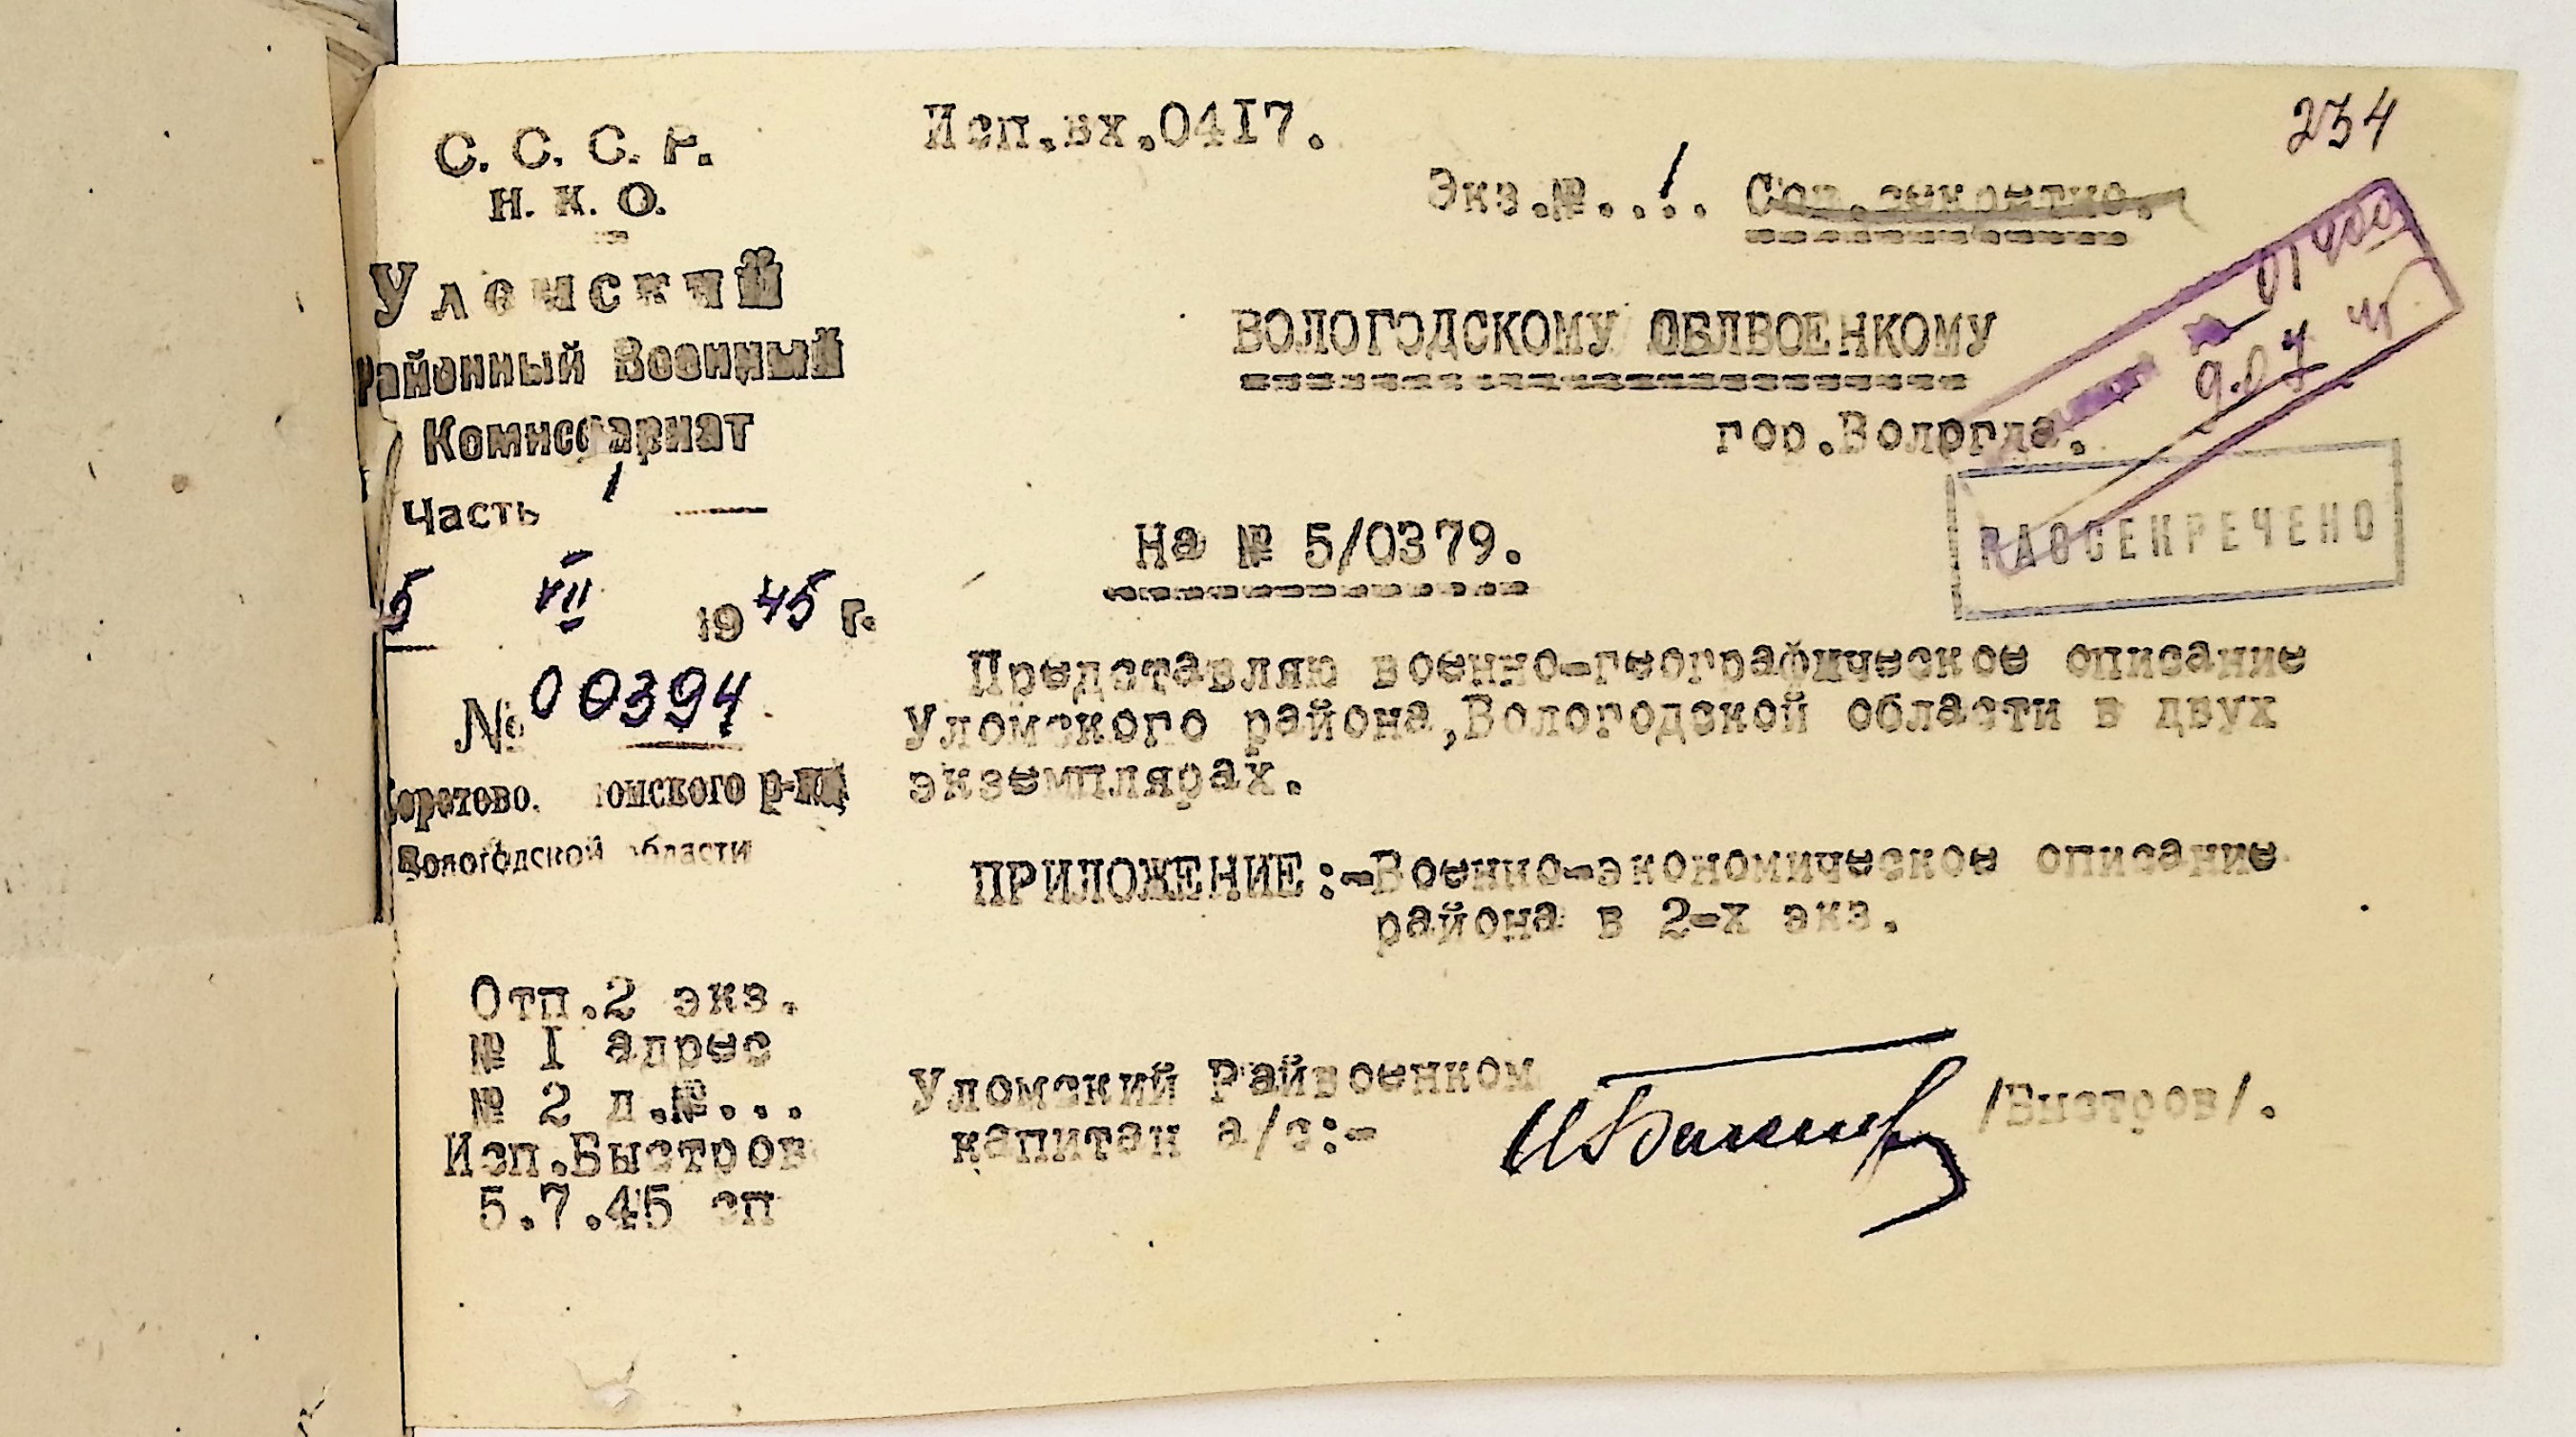 234
С. С. С. Р.
Н. К. О.
Уломский
Районный Военный
Комиссариат
Часть 1
5 VII 1945 г.
№ 00394
омского р-на,
Вологодской области
Исп.вх.04I7.
Экз.№..1. Сов.секретно.
ВОЛОГОДСКОМУ ОБЛВОЕНКОМУ
гор.Вологда.
01900
9.07
РАССЕКРЕЧЕНО
На № 5/0379.
Представляю военно-географическое описание
Уломского района,Вологодской области в двух
экземплярах.
ПРИЛОЖЕНИЕ:-Военно-экономическое описание
района в 2-х экз.
Отп.2 экз.
№ I адрес
№ 2 д.№...
Исп.Быстров
5.7.45 эп
Уломский Райвоенком
капитан а/с:-
/Быстров/.